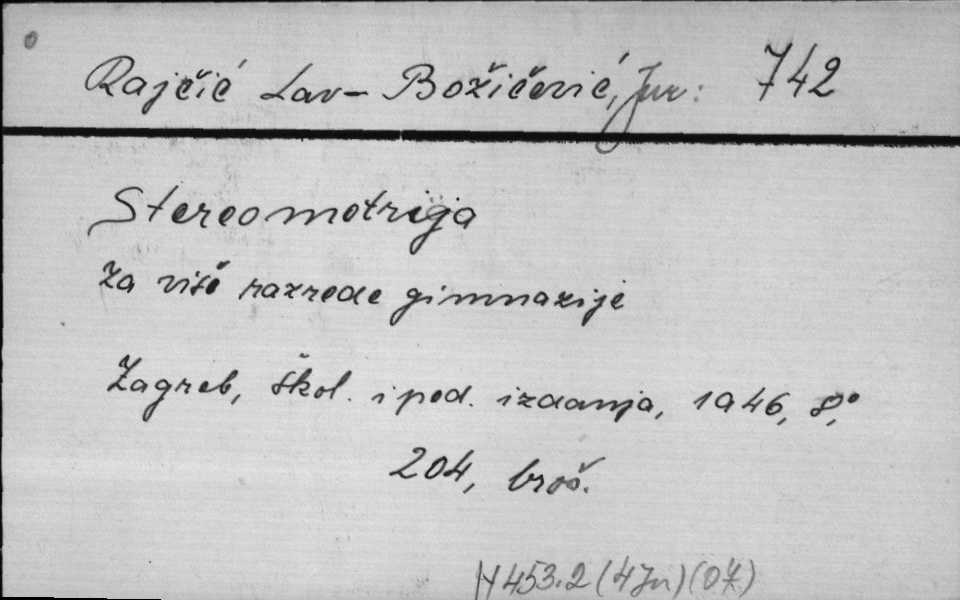 Rajčić Lav – Božičević, Jur: 742
Stereometrija
Za više razrede gimnazije
Zagreb, škol. i ped. izdanja, 1946, 8°,
204, broš.
453.2 (4Jn) (07)